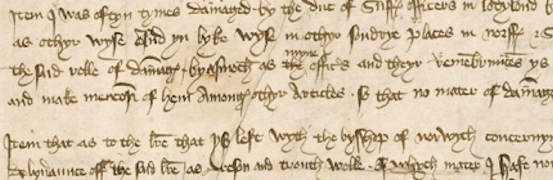 Item I was oftyn tymes damaged by the duc of Suff officers in lodylond
as othyr wyse And yn lyke wyse in othyr sundrye places in norff
the said rolle of damag by as moch as myne offices and theyr remembraunces
and make mencon of hem Among othyr Articles so that no mater of damag
Item that as to the lre that ys left wyth the bysshop of norwych concernyng
delyveraunce off the said lre as reson and trouth wolle whych mater I